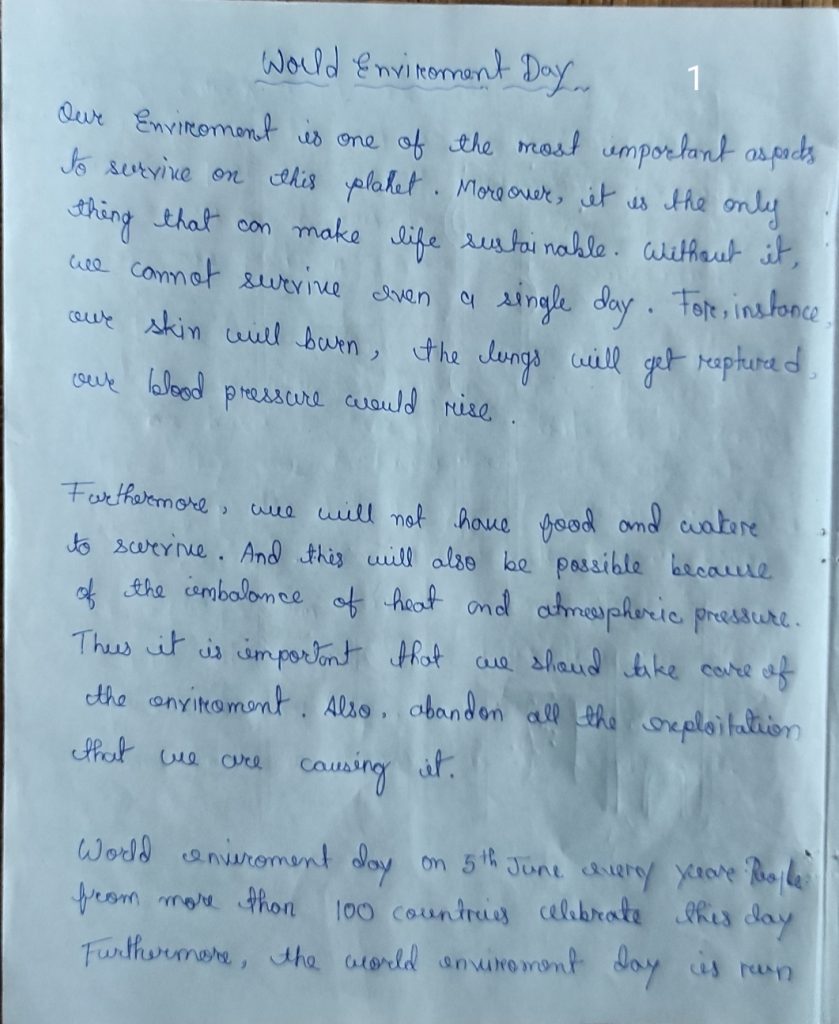 World Enviroment Day
1
Our Enviroment is one of the most important aspects
to survive on this planet. Moreover, it is the only
thing that can make life sustainable. Without it,
we cannot survive even a single day. For, instance,
our skin will burn, the lungs will get reptured,
our blood pressure would rise.
Furthermore, we will not have food and water
to survive. And this will also be possible because
of the imbalance of heat and atmospheric pressure.
Thus it is important that we shoud take care of
the enviroment. Also, abandon all the exploitation
that we are causing it.
World enviroment day on 5th June every year. People
from more than 100 countries celebrate this day
Furthermore, the world enviroment day is run